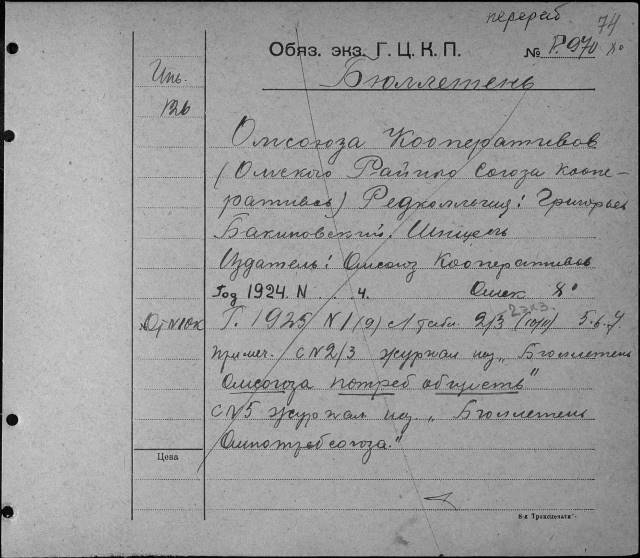 перераб 74
Обяз. экз. Г. Ц. К. П. № P.970 8°
Бюллетень
Омсоюза Кооперативов
(Омского Райпо Союза Коопе-
ративов) Редколлегия: Григорьев
Бакиновский.
Издатель: Омсоюз Кооперативов
Год 1924. N . . 4. Омск 8°
2 экз.
Г. 1925 N1 (9) с 1 табл. 2/3 (10/11) 5.6.7.
Примеч. с N2/3 журнал наз. „Бюллетень
Омсоюза потреб обществ"
с N5 журнал наз. „Бюллетень
Омпотребсоюза."
Цена
8-я Транспечати".